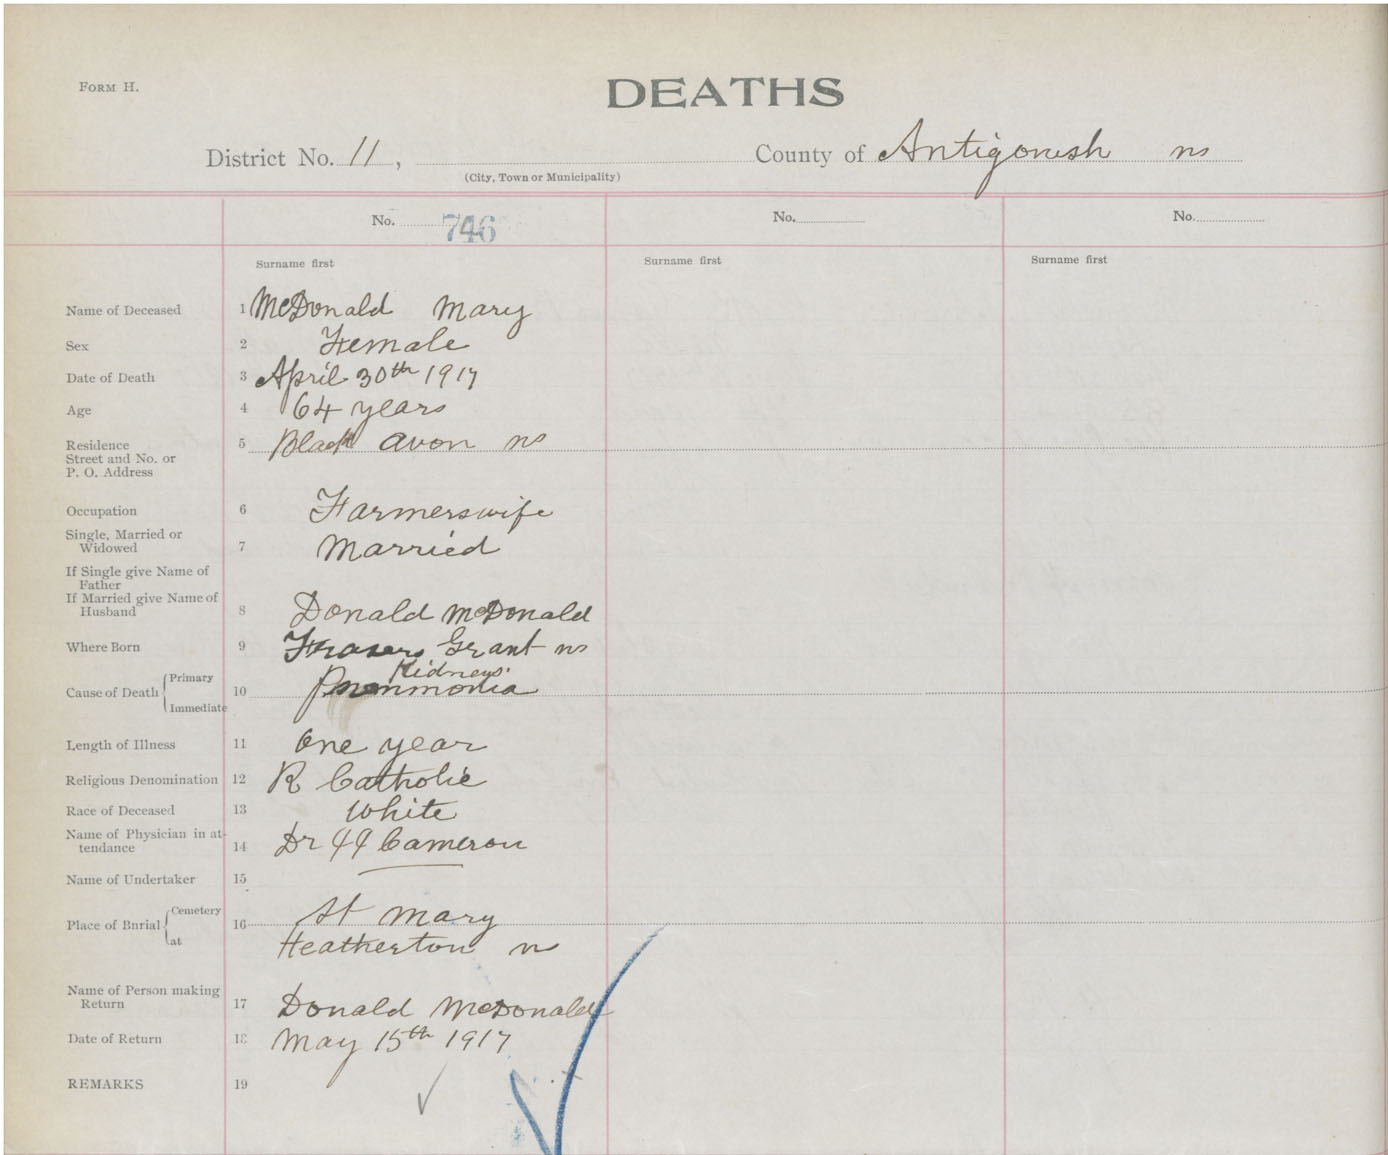 FORM H.
DEATHS
District No. 11, County of Antigonish ns
(City, Town or Municipality)
No. 746 No. No.
Surname first Surname first Surname first
Name of Deceased 1 McDonald Mary
Sex 2 Female
Date of Death 3 April 30th 1917
Age 4 64 years
Residence 5 Black avon ns
Street and No. or
P. O. Address
Occupation 6 Farmerswife
Single, Married or
Widowed 7 Married
If Single give Name of
Father
If Married give Name of
Husband 8 Donald McDonald
Where Born 9 Frasers Grant ns
Kidneys
Cause of Death { Primary 10 Pnenmonia
Immediate
Length of Illness 11 One year
Religious Denomination 12 R Catholic
Race of Deceased 13 White
Name of Physician in at-
tendance 14 Dr Cameron
Name of Undertaker 15
Place of Burial { Cemetery 16 St Mary
at Heatherton ns
Name of Person making
Return 17 Donald McDonald
Date of Return 18 May 15th 1917
REMARKS 19